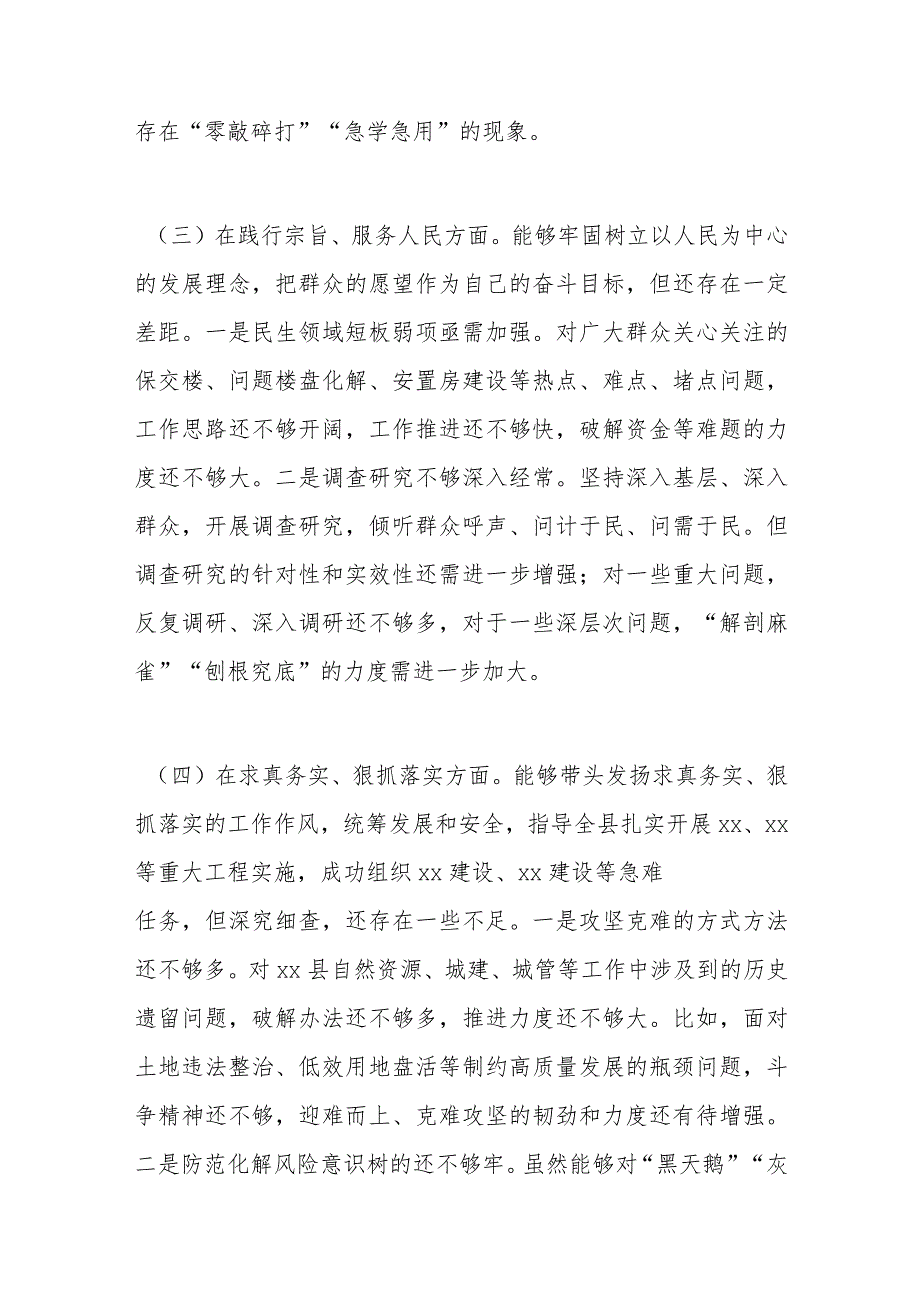 存在“零敲碎打”“急学急用”的现象。
（三）在践行宗旨、服务人民方面。能够牢固树立以人民为中心
的发展理念，把群众的愿望作为自己的奋斗目标，但还存在一定
差距。一是民生领域短板弱项亟需加强。对广大群众关心关注的
保交楼、问题楼盘化解、安置房建设等热点、难点、堵点问题，
工作思路还不够开阔，工作推进还不够快，破解资金等难题的力
度还不够大。二是调查研究不够深入经常。坚持深入基层、深入
群众，开展调查研究，倾听群众呼声、问计于民、问需于民。但
调查研究的针对性和实效性还需进一步增强；对一些重大问题，
反复调研、深入调研还不够多，对于一些深层次问题，“解剖麻
雀”“刨根究底”的力度需进一步加大。
（四）在求真务实、狠抓落实方面。能够带头发扬求真务实、狠
抓落实的工作作风，统筹发展和安全，指导全县扎实开展xx、xx
等重大工程实施，成功组织xx建设、xx建设等急难
任务，但深究细查，还存在一些不足。一是攻坚克难的方式方法
还不够多。对xx县自然资源、城建、城管等工作中涉及到的历史
遗留问题，破解办法还不够多，推进力度还不够大。比如，面对
土地违法整治、低效用地盘活等制约高质量发展的瓶颈问题，斗
争精神还不够，迎难而上、克难攻坚的韧劲和力度还有待增强。
二是防范化解风险意识树的还不够牢。虽然能够对“黑天鹅”“灰